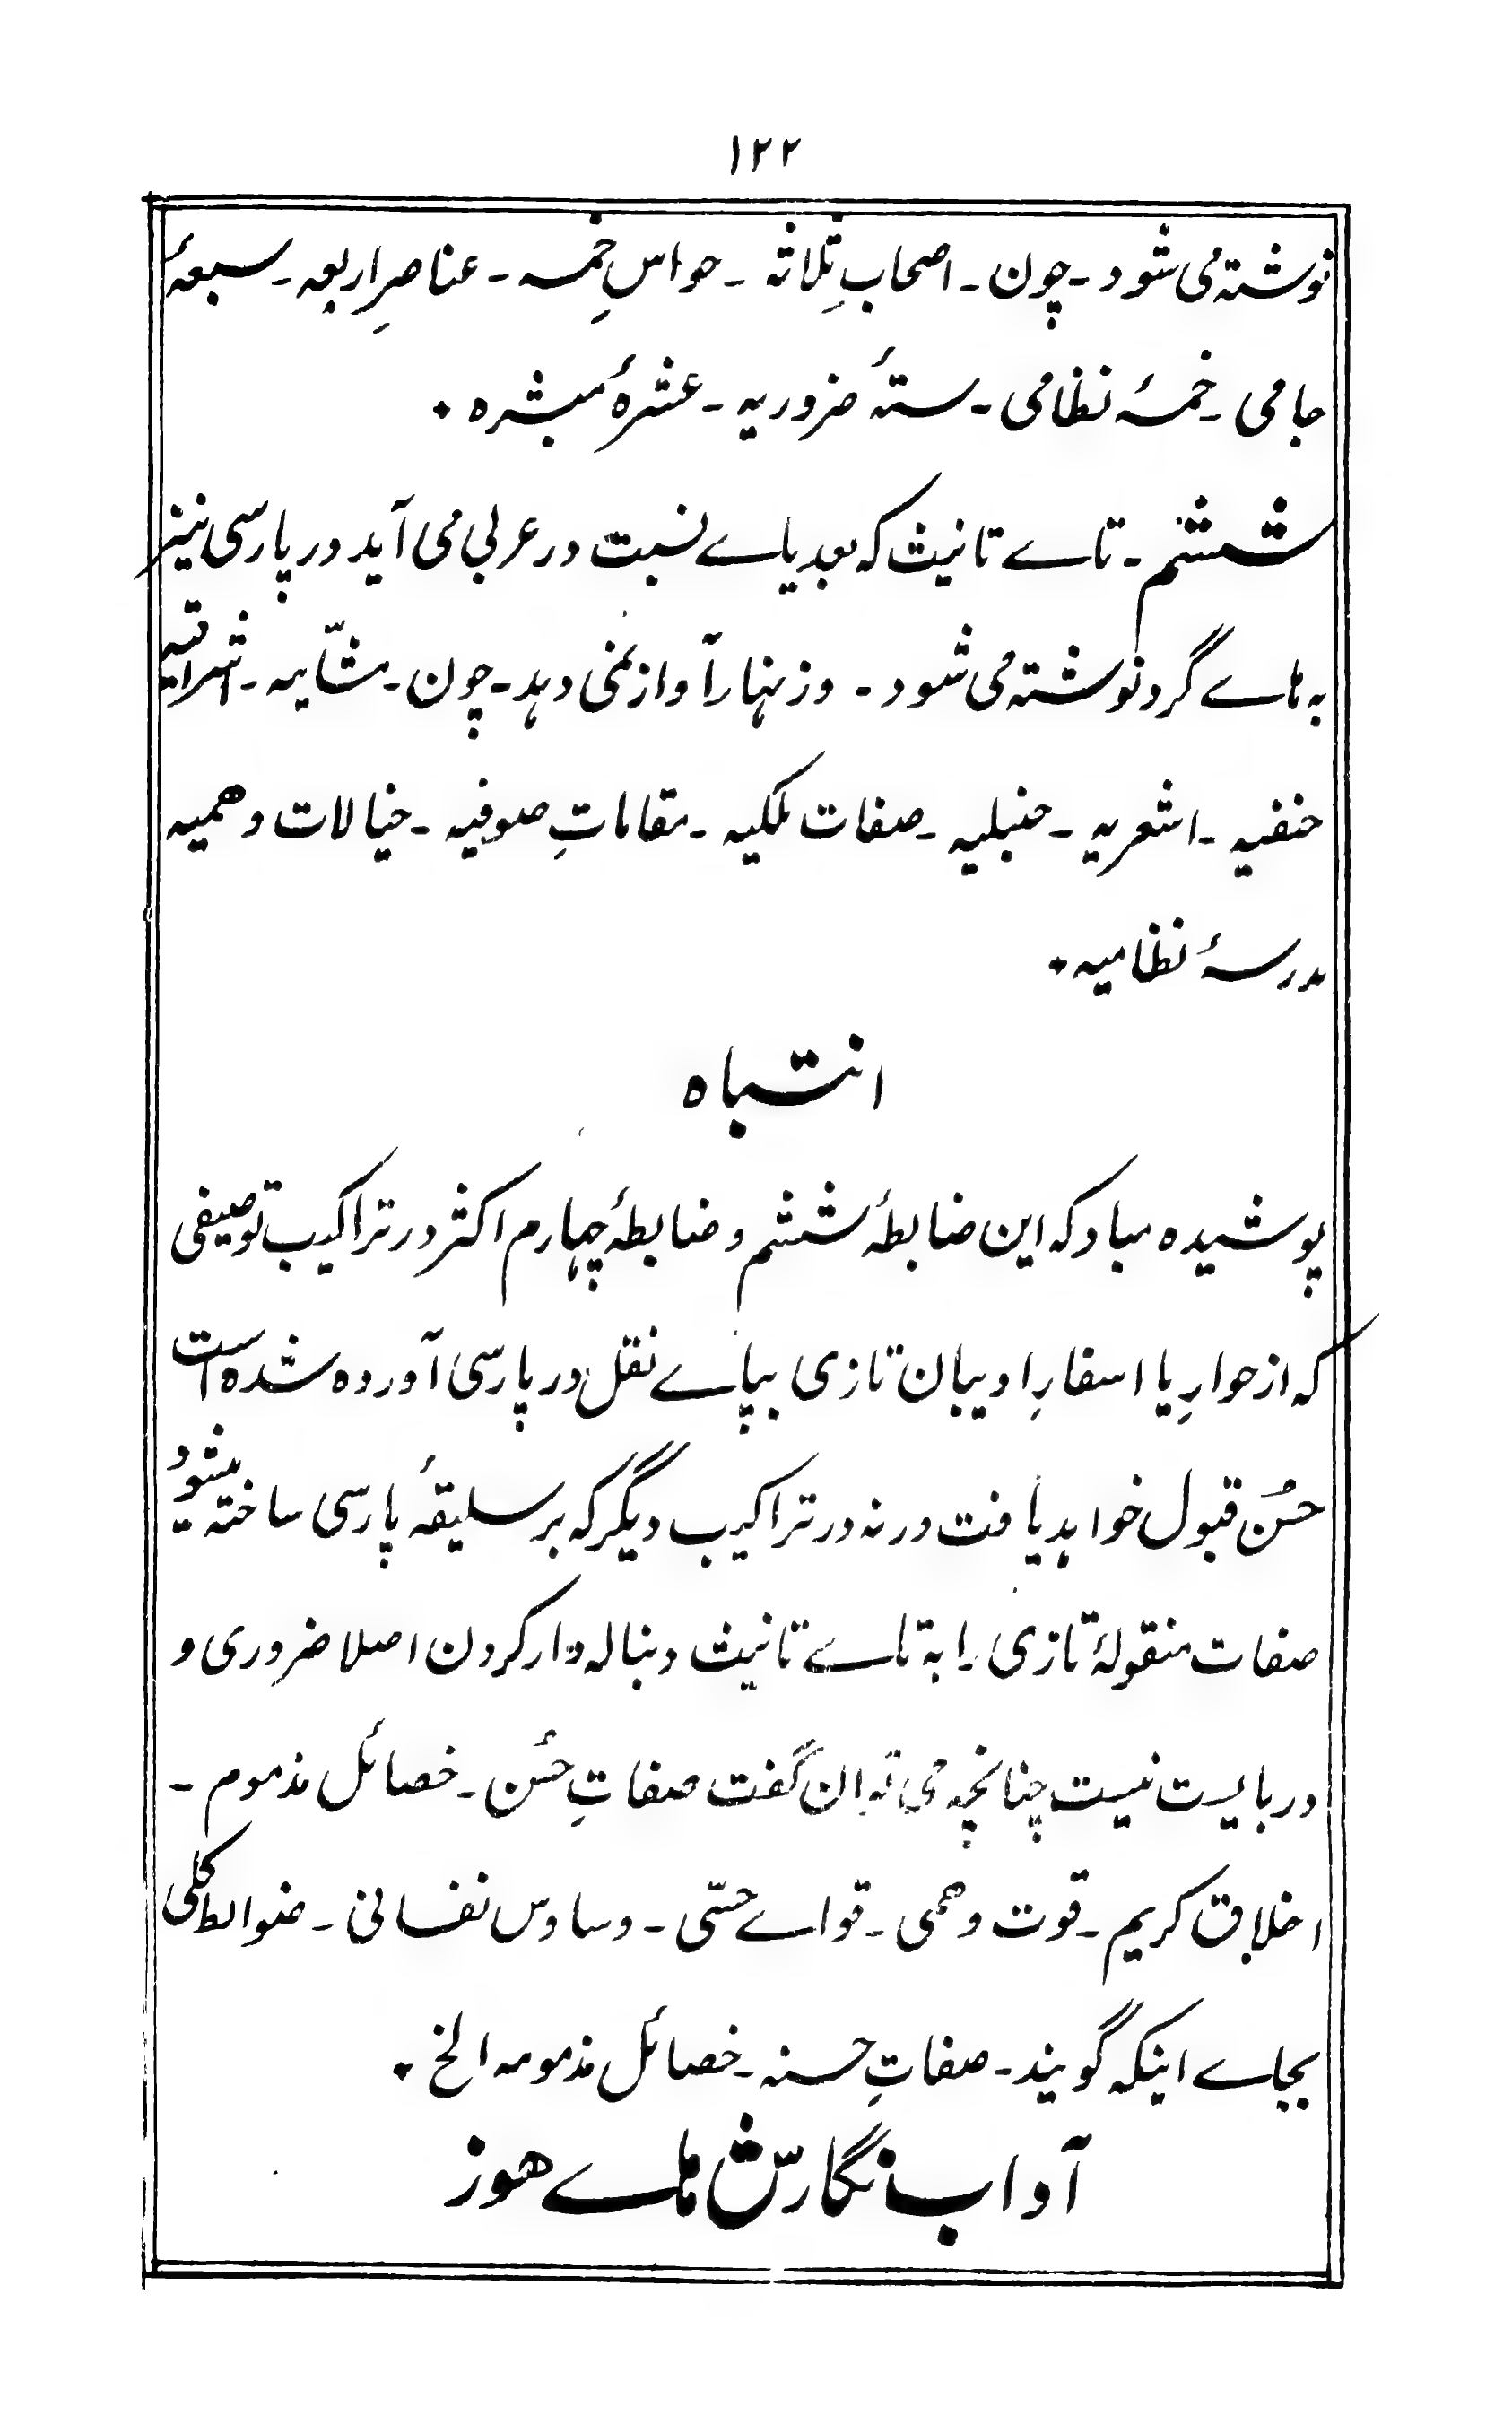 ۱۲۲
نوشته می شود ـ چون ـ اصحابِ ثلاثه ـ حواسِ خمسه ـ عناصرِ اربعه ـ سبعهٔ
جامی ـ خمسهٔ نظامی ـ ستهٔ ضروریه ـ عشرهٔ مبشره ٭
ششم ـ تاے تانیث که بعد یاے نسبت در عربی می آید در پارسی نیز
به هاے گرد نوشته می شود ـ و زنهار آواز نمی دهد ـ چون ـ مشّائیه ـ اشراقیه
حنفیه ـ اشعریه ـ حنبلیه ـ صفات ملکیه ـ مقاماتِ صوفیه ـ خیالات وهمیه
مدرسهٔ نظامیه ٭
انتباه
پوشیده مباد که این ضابطهٔ ششم و ضابطهٔ چهارم اکثر در تراکیب توصیفی
که از حوارِ یا اسفارِ ادیبان تازی بپاے نقل در پارسی آورده شده است
حسُن قبول خواهد یافت ورنه در تراکیب دیگر که بر سلیقهٔ پارسی ساخته میشود
صفات منقولهٔ تازی را به تاے تانیث دنباله دار کردن اصلا ضروری و
دربایست نیست چنانچه می توان گفت صفاتِ حسَن ـ خصائل مذموم ـ
اخلاق کریم ـ قوت وهمی ـ قواے حسّی ـ وساوس نفسانی ـ ضوابط کلی
بجاے اینکه گویند ـ صفاتِ حسنه ـ خصائل مذمومه الخ ٭
آداب نگارش هاے هوز